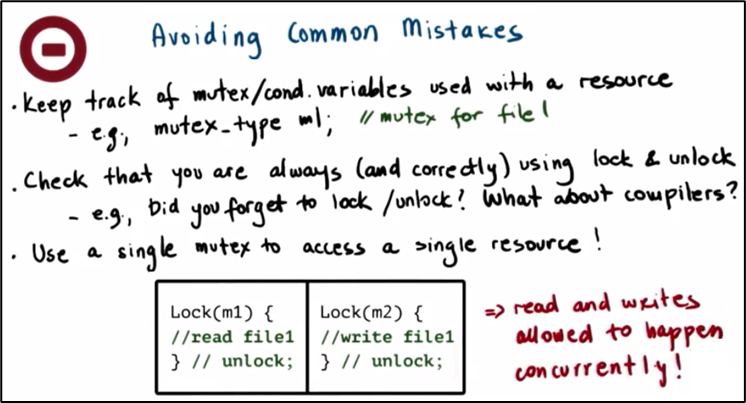 Avoiding Common Mistakes
• Keep track of mutex/cond. variables used with a resource
- e.g., mutex_type m1; // mutex for file 1
• Check that you are always (and correctly) using lock & unlock
- e.g., Did you forget to lock / unlock? What about compilers?
• Use a single mutex to access a single resource!
Lock(m1) {
//read file1
} // unlock;
Lock(m2) {
//write file1
} // unlock;
=> read and writes
allowed to happen
concurrently!